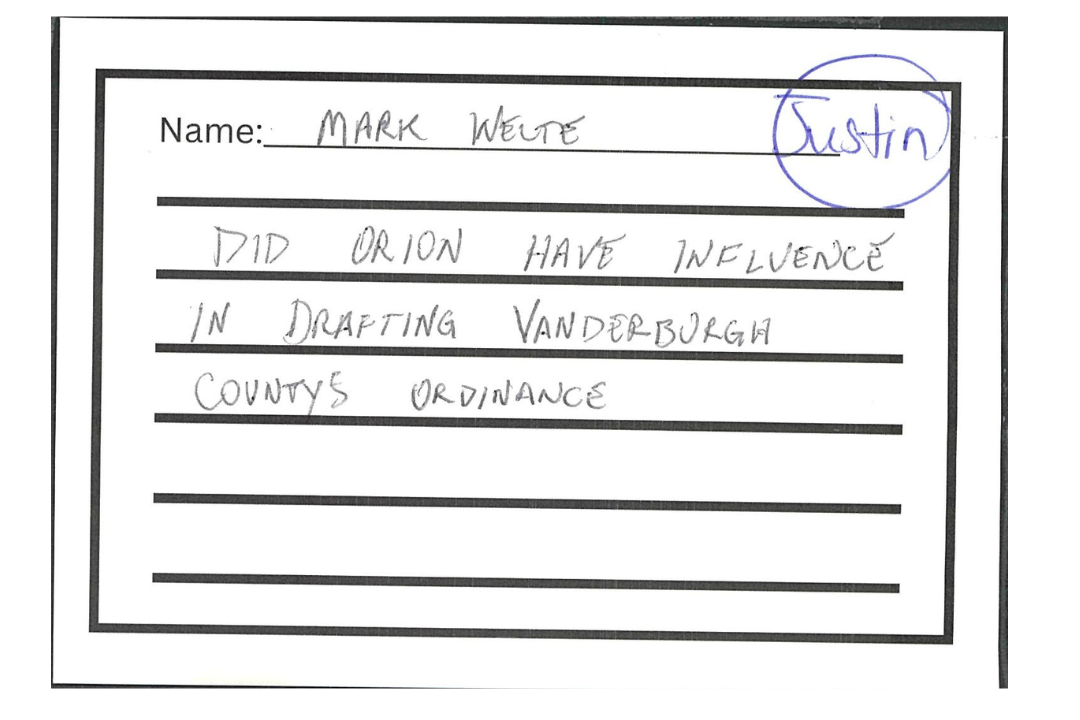 Name: MARK WELTE Justin
DID ORION HAVE INFLUENCE
IN DRAFTING VANDERBURGH
COUNTYS ORDINANCE